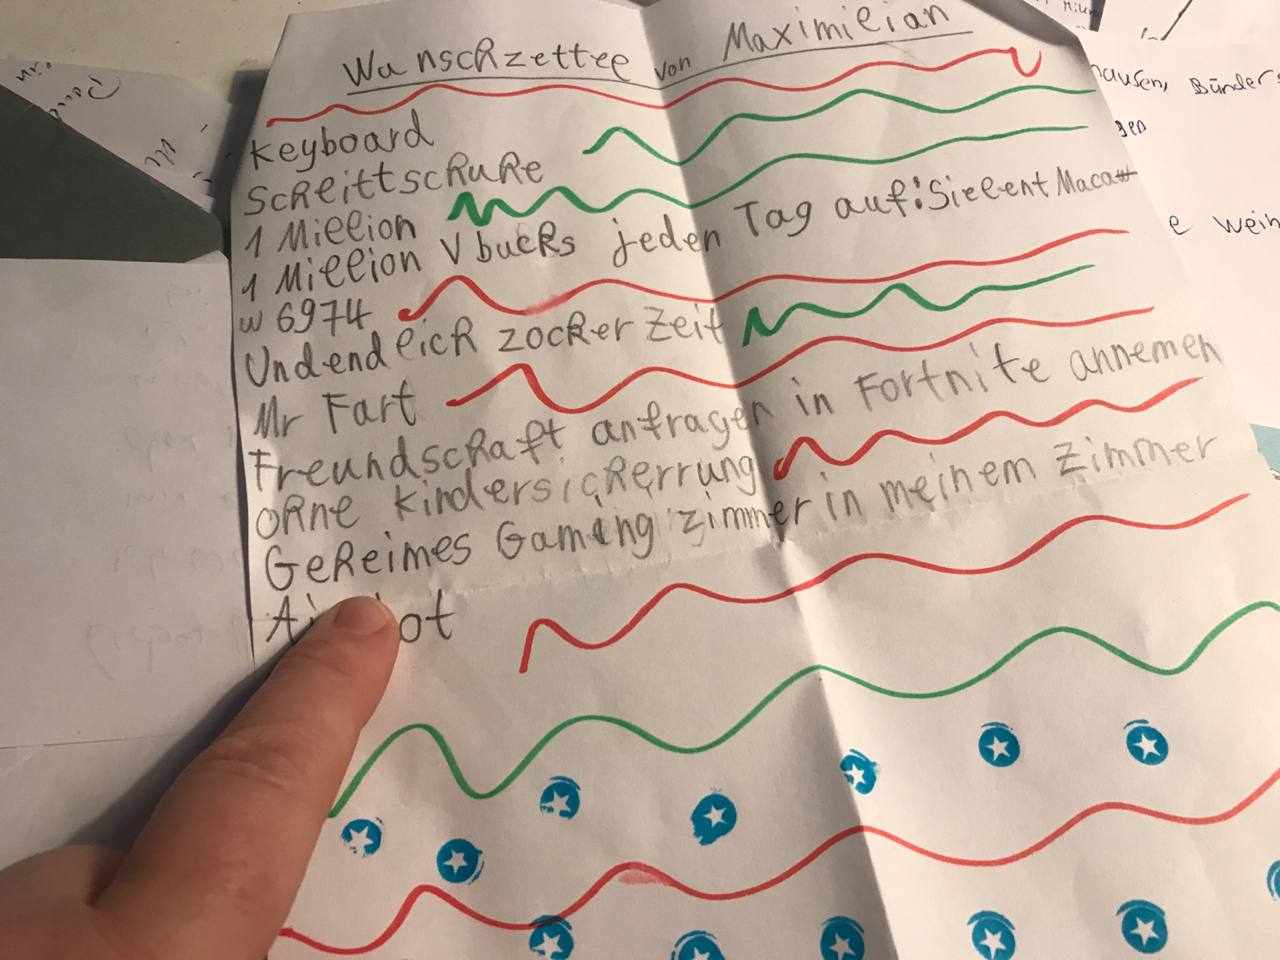 Wunschzettel von Maximilian
Keyboard
Schlittschuhe
1 Million
1 Million V bucks jeden Tag auf: Sielent Macatt
w 6974
Undendlich zocker Zeit
Mr Fart
Freundschaft anfragen in Fortnite annemen
ohne kindersicherrung
Geheimes Gaming zimmer in meinem Zimmer
Ai ot
hausen, Bünder
gen
e Wein